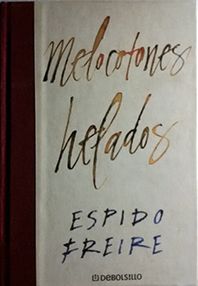 melocotones
helados
ESPIDO
FREIRE
DEBOLSILLO